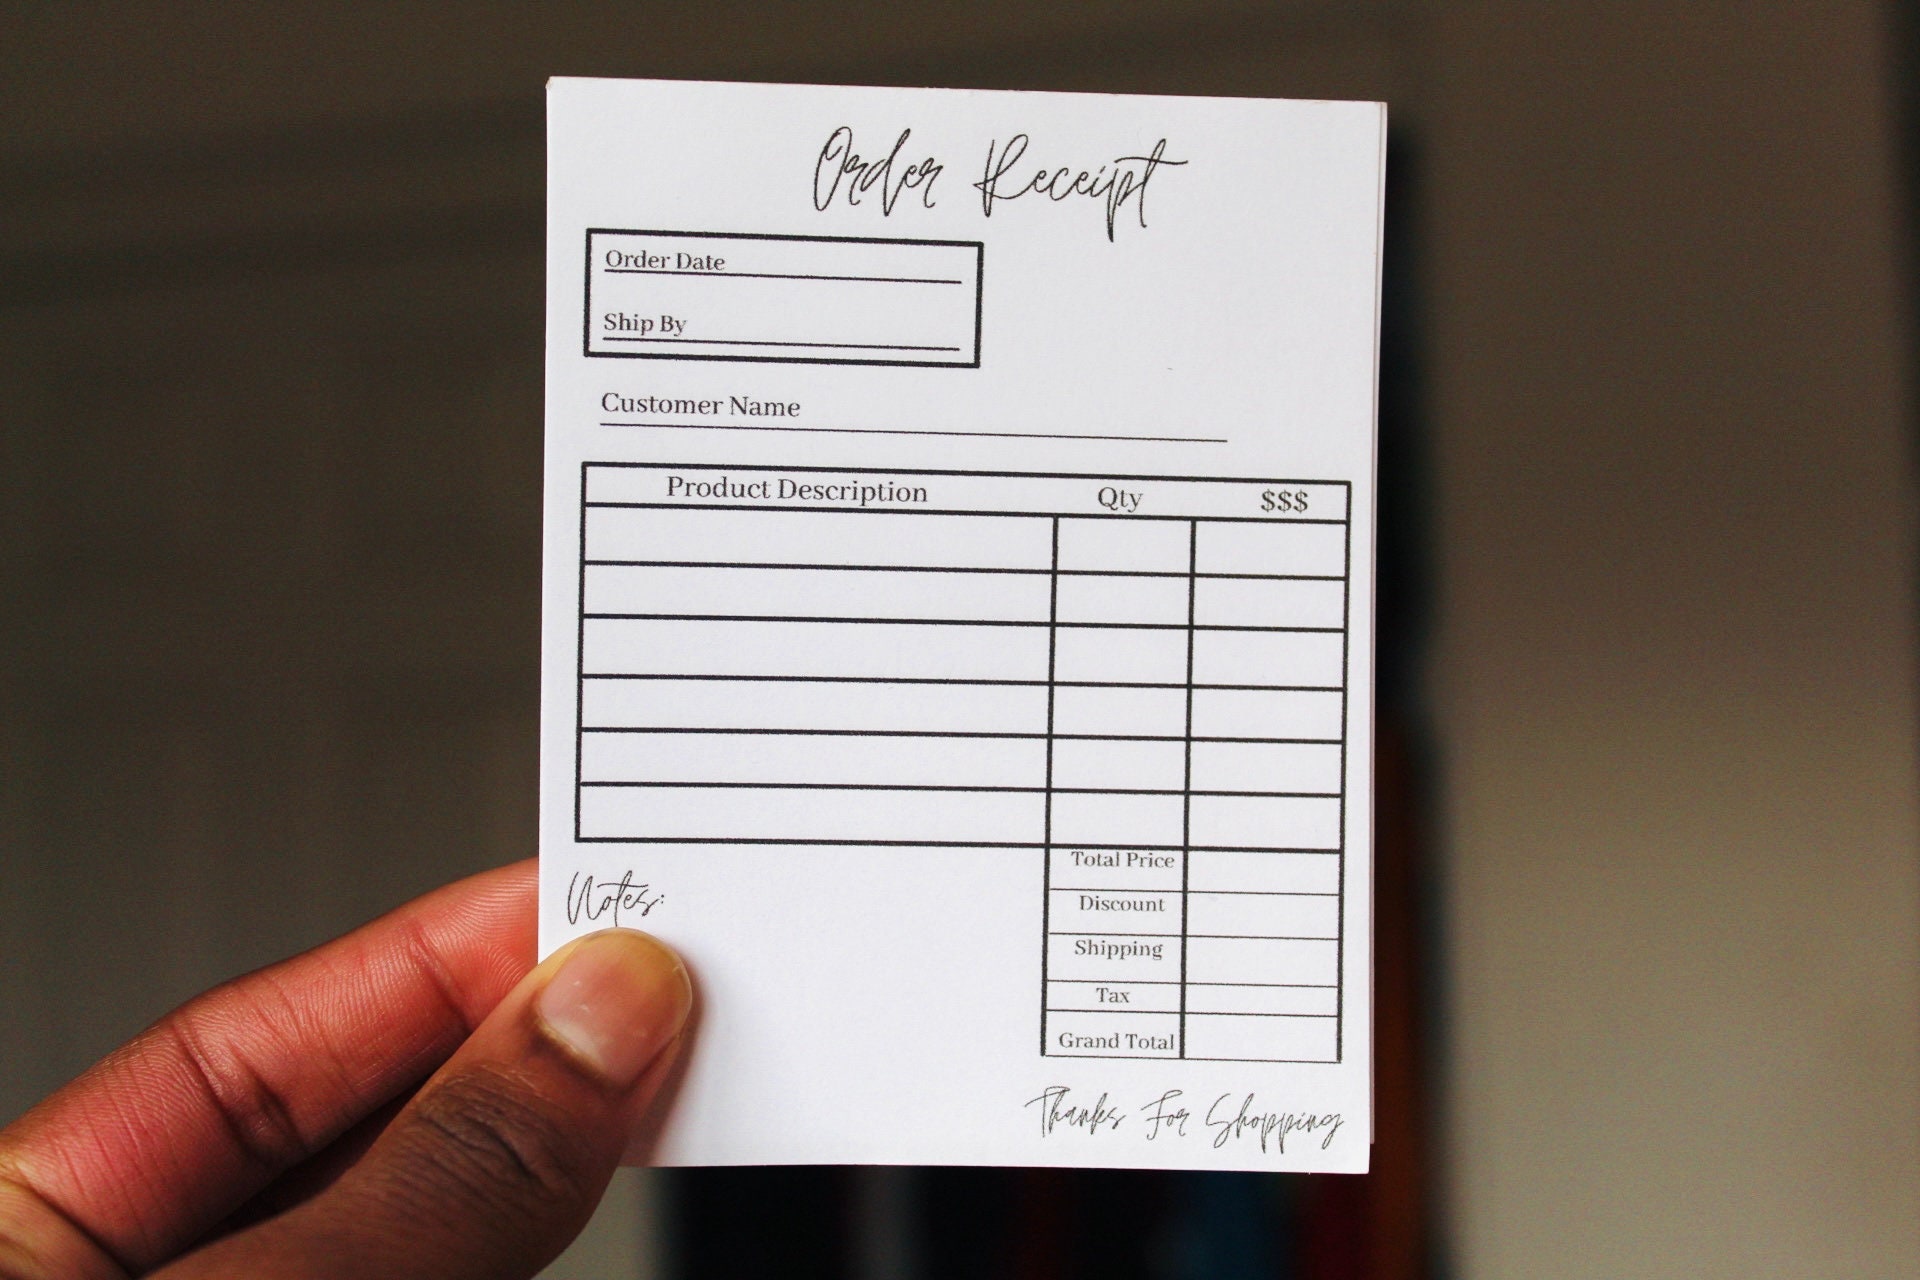 Order Receipt
Order Date
Ship By
Customer Name
Product Description Qty $$$
Total Price
Notes:
Discount
Shipping
Tax
Grand Total
Thanks For Shopping